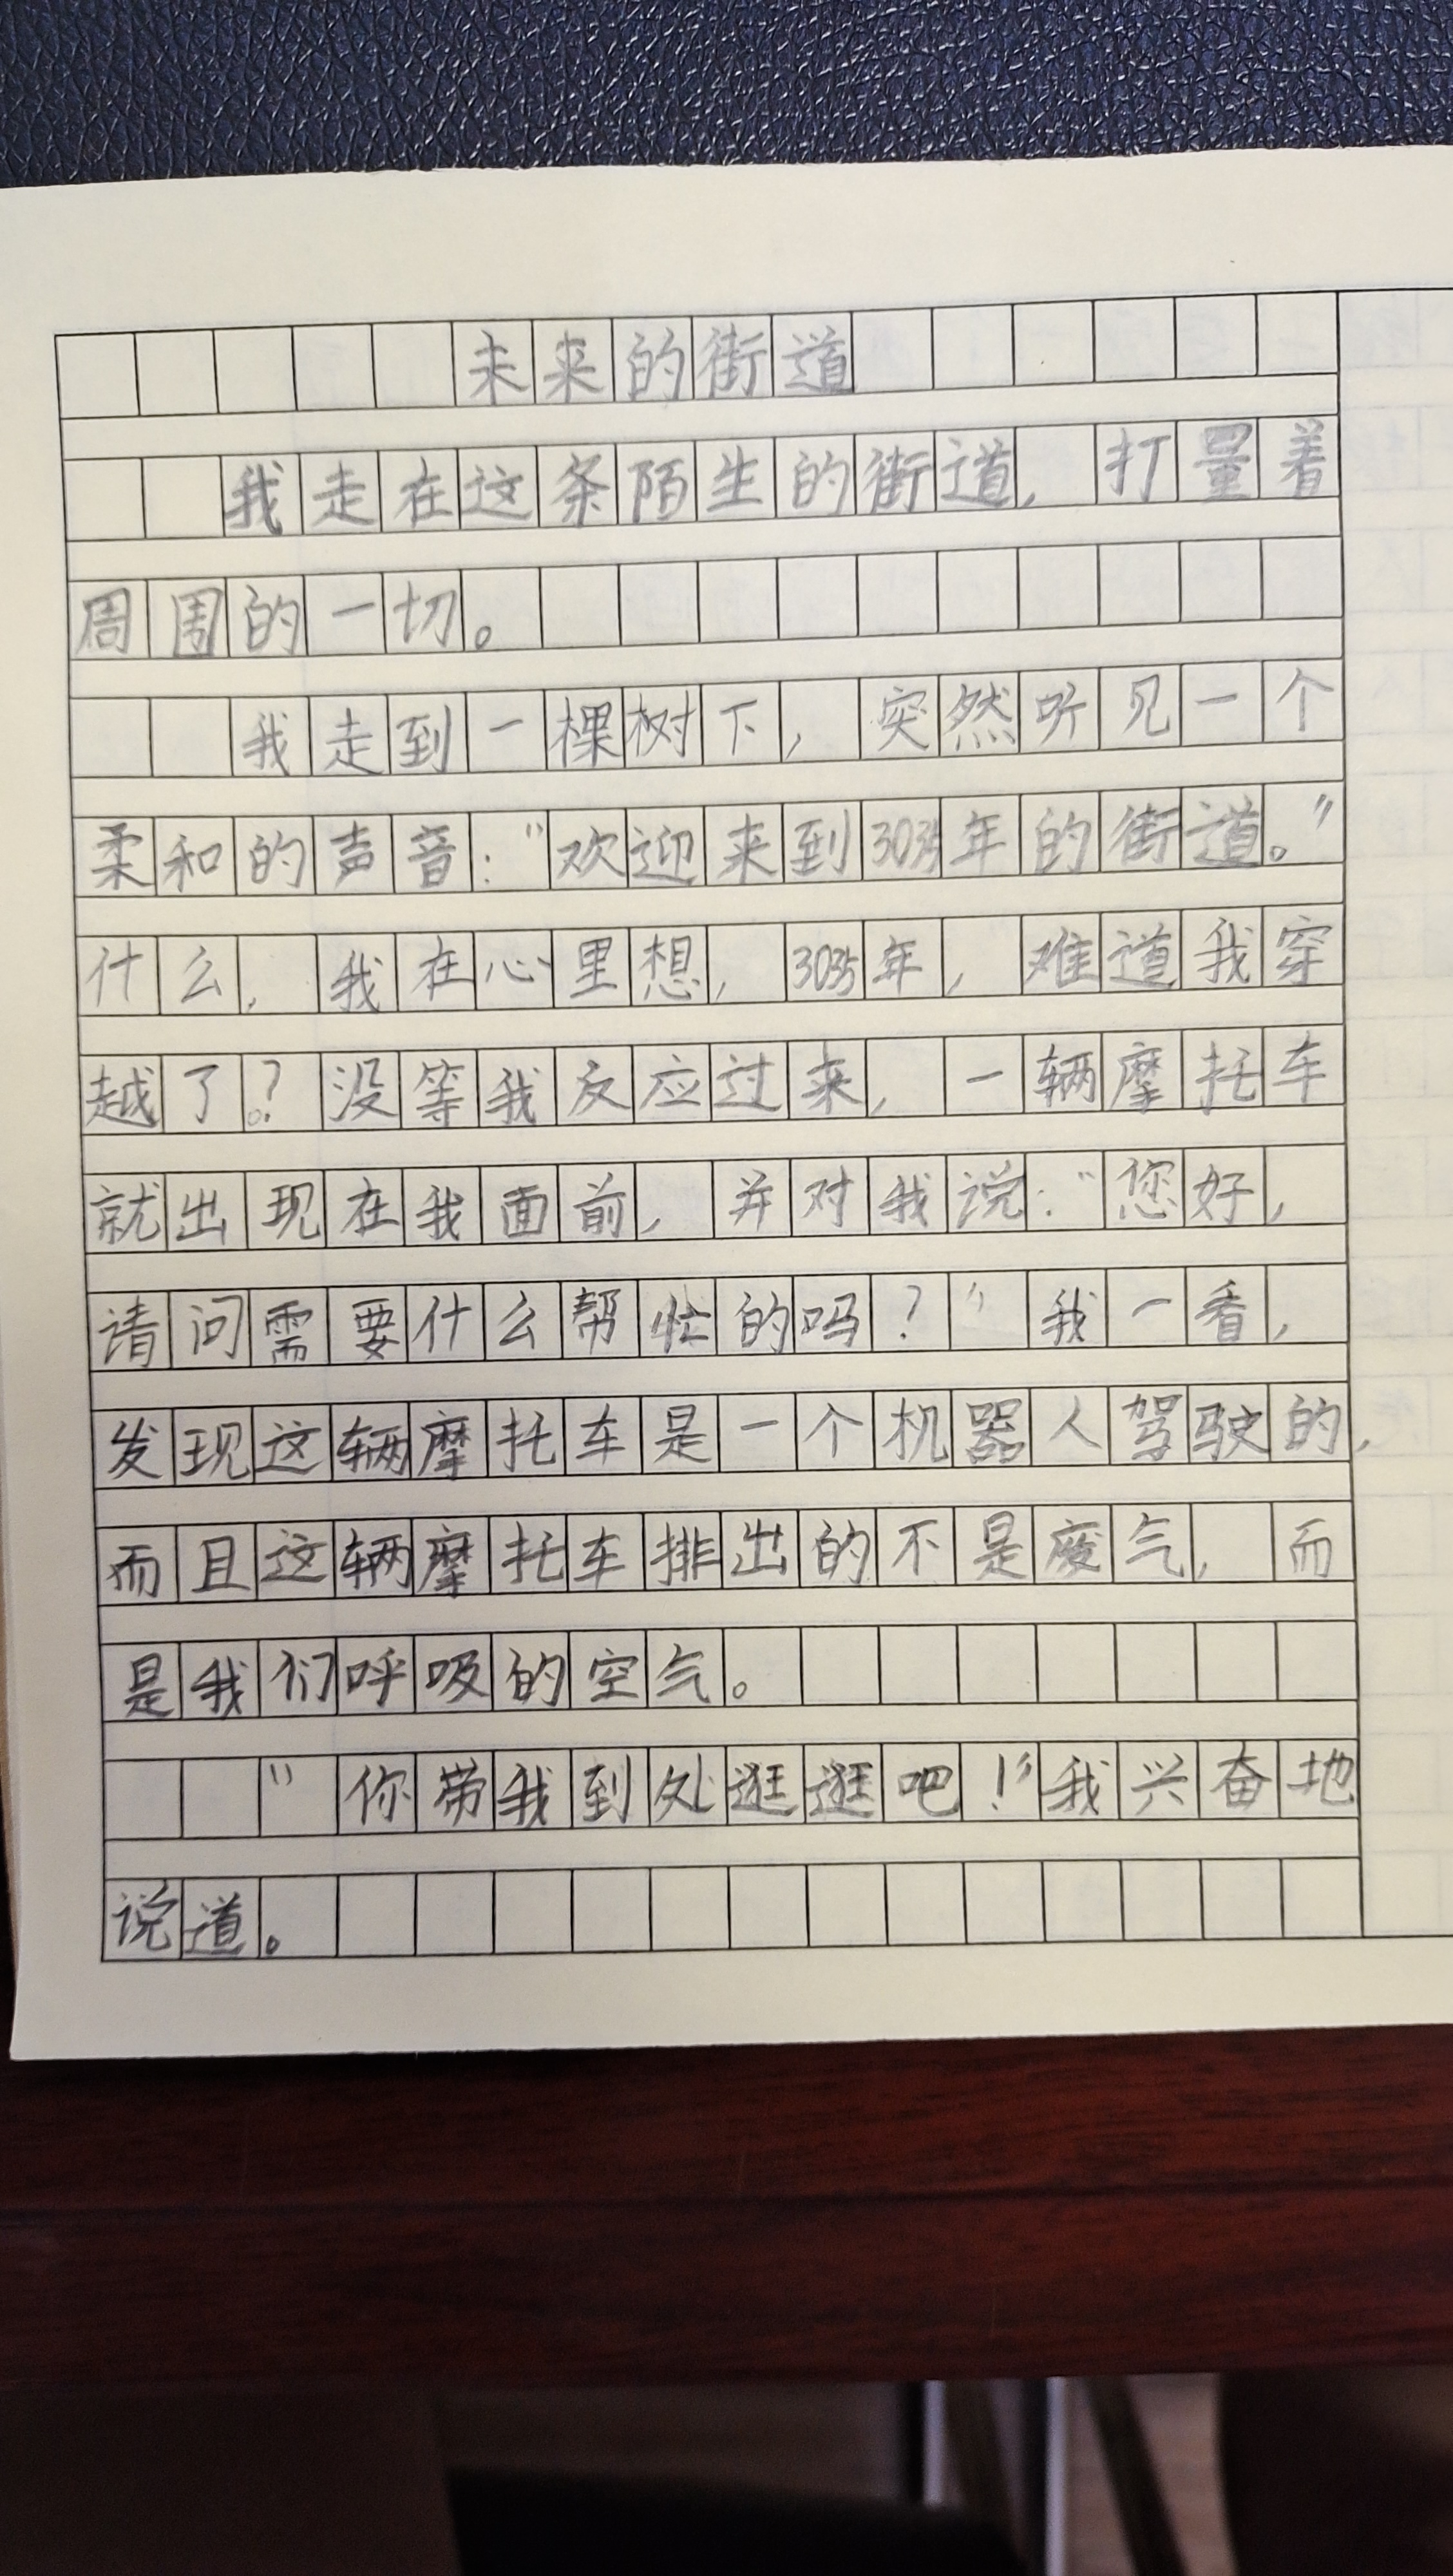 未来的街道
我走在这条陌生的街道，打量着
周围的一切。
我走到一棵树下，突然听见一个
柔和的声音：“欢迎来到3035年的街道。”
什么，我在心里想，3035年，难道我穿
越了？没等我反应过来，一辆摩托车
就出现在我面前，并对我说：“您好，
请问需要什么帮忙的吗？”我一看，
发现这辆摩托车是一个机器人驾驶的，
而且这辆摩托车排出的不是废气，而
是我们呼吸的空气。
“你带我到处逛逛吧！”我兴奋地
说道。